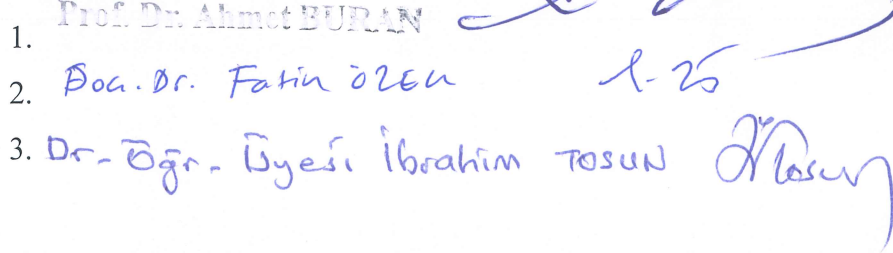 1. Prof. Dr. Ahmet BURAN
2. Doç. Dr. Fatih ÖZEK
3. Dr. Öğr. Üyesi İbrahim TOSUN